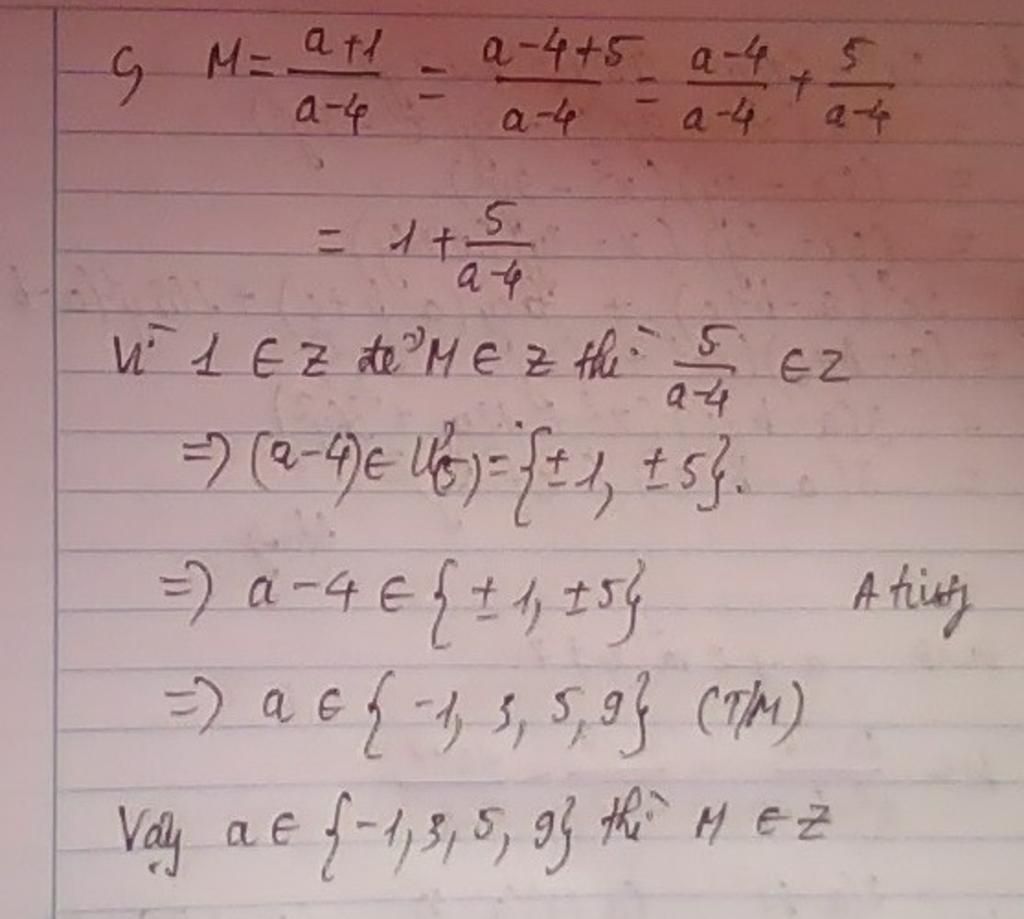 c, M = \frac{a+1}{a-4} = \frac{a-4+5}{a-4} = \frac{a-4}{a-4} + \frac{5}{a-4}
= 1 + \frac{5}{a-4}
Vì 1 ∈ Z để M ∈ Z thì \frac{5}{a-4} ∈ Z
=> (a-4) ∈ Ư(5) = {±1, ±5}.
=> a-4 ∈ {±1, ±5}
=> a ∈ {-1, 3, 5, 9} (T/M)
Vậy a ∈ {-1, 3, 5, 9} thì M ∈ Z